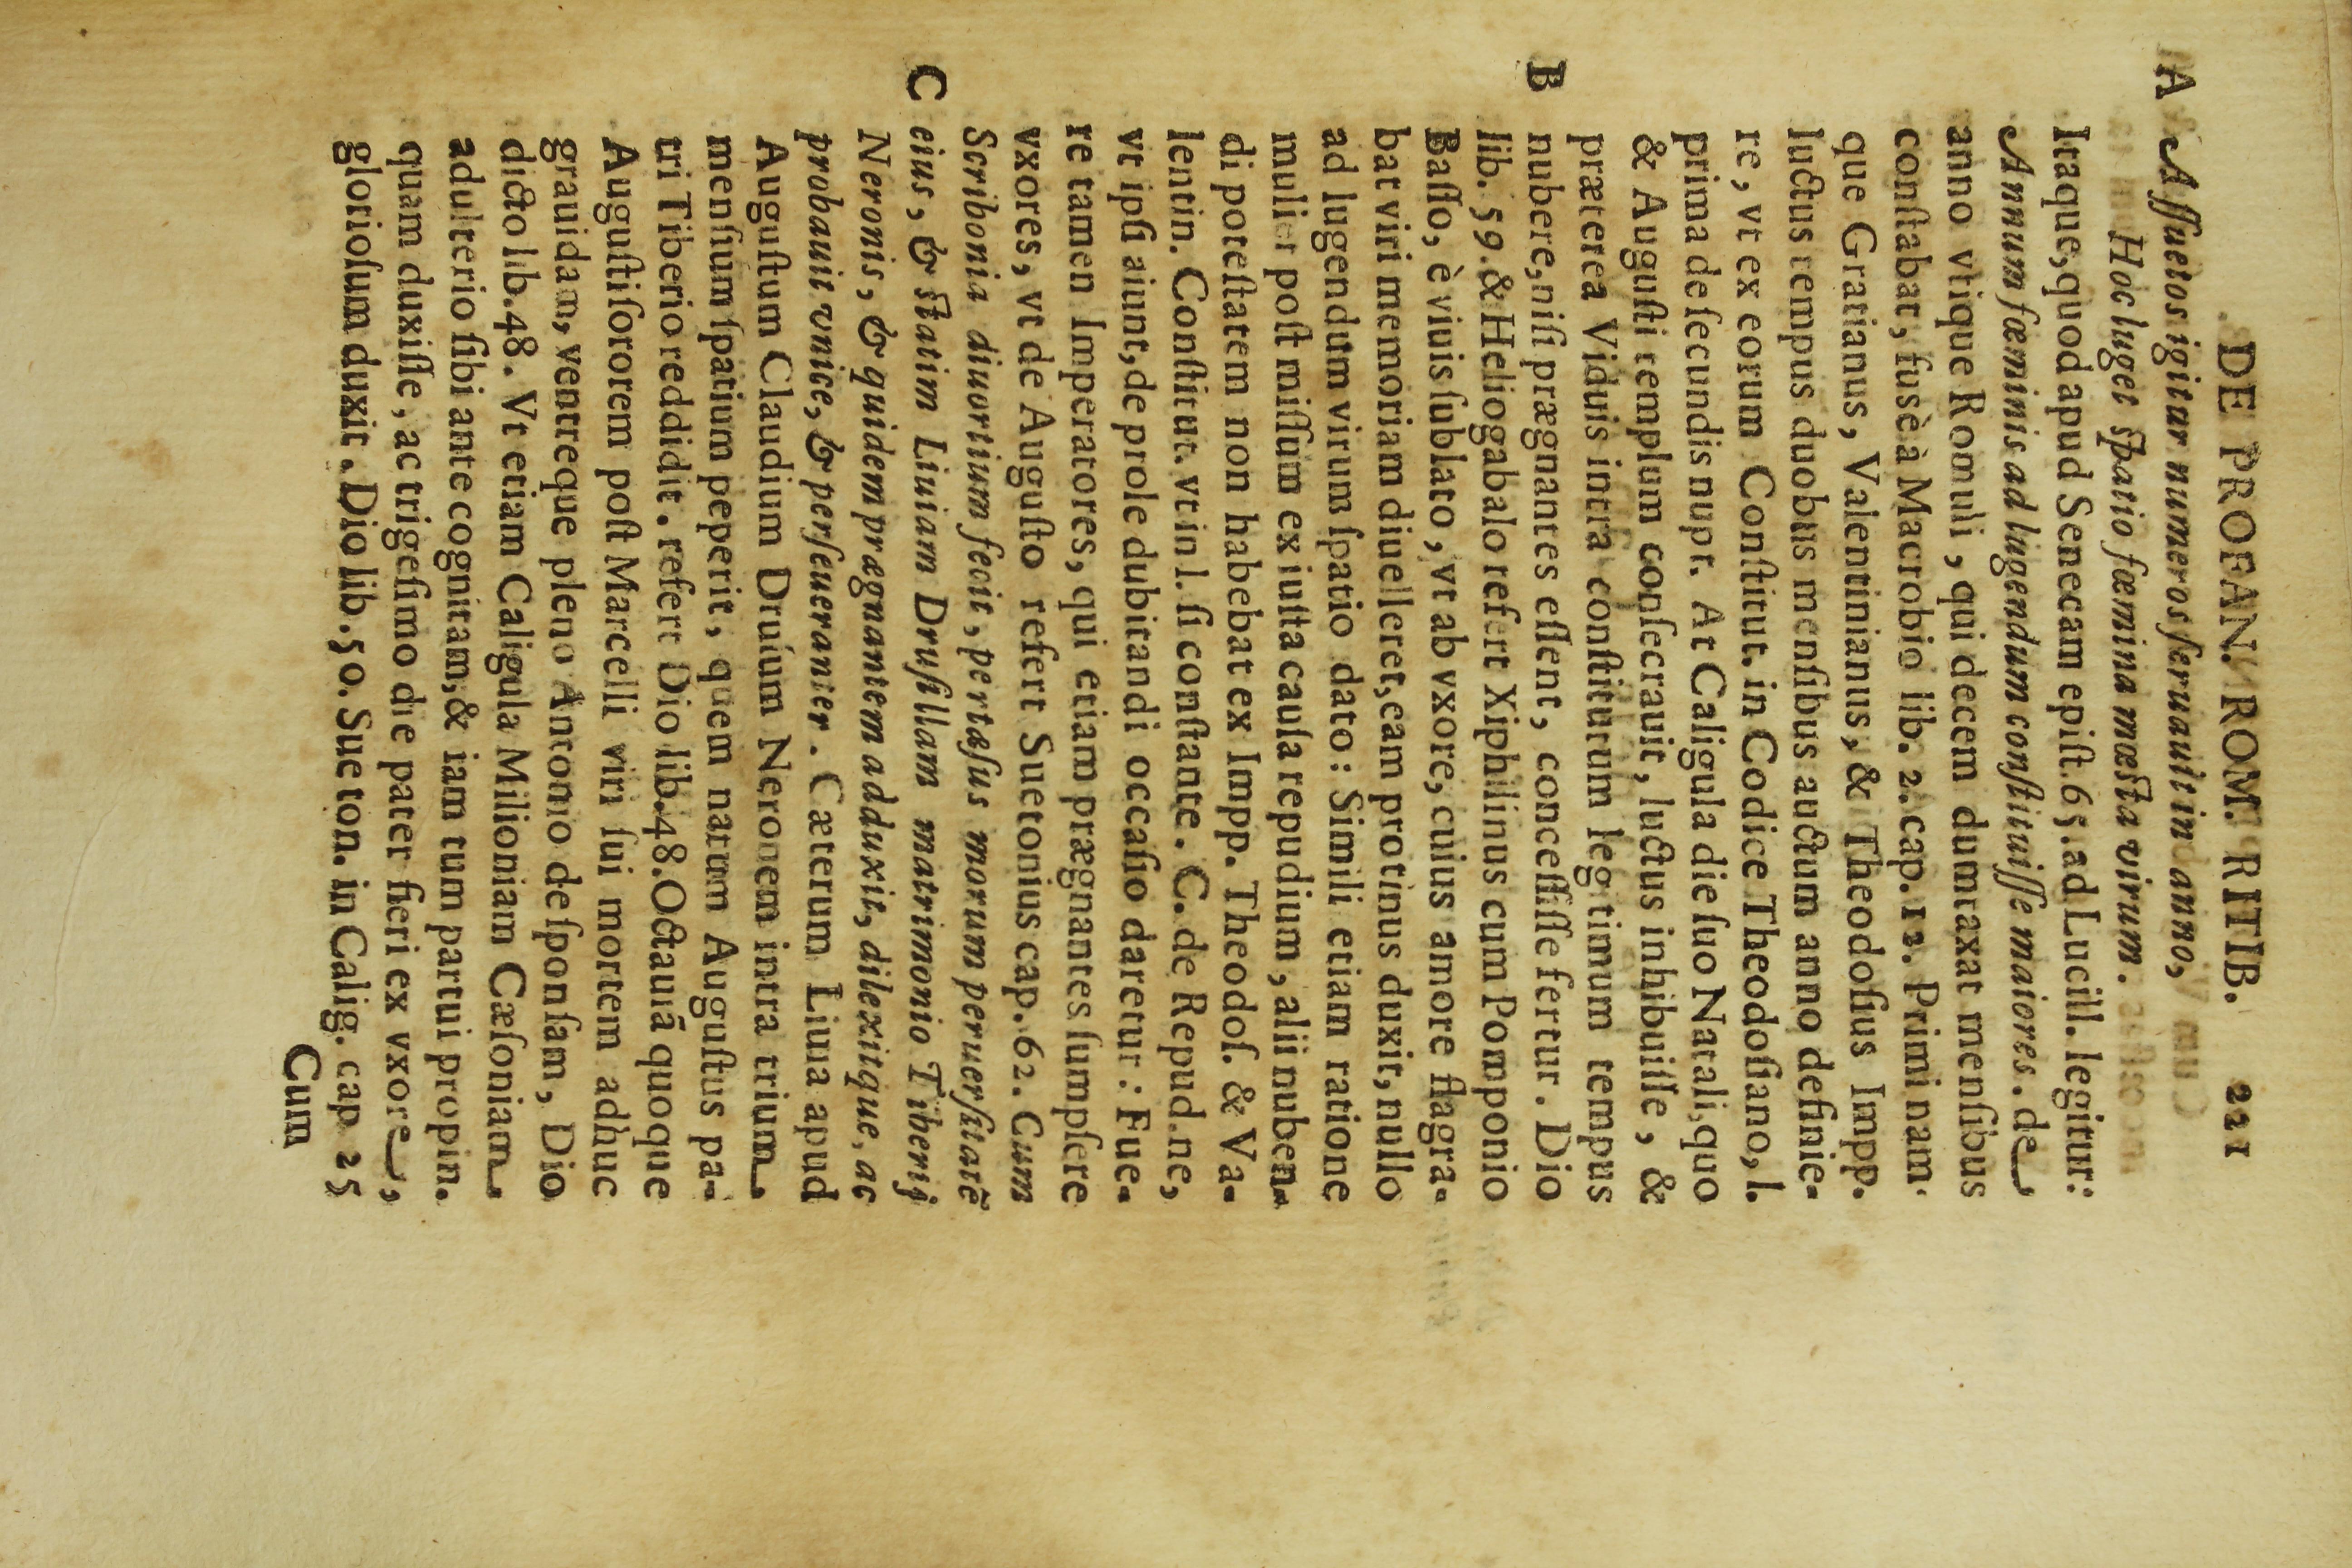 DE PROFAN. ROM. RITIB. 221
A Aſſuetos igitur numeros ſeruauit in anno,
Hoc luget ſpatio fœmina mæſta virum.
Itaque, quod apud Senecam epiſt. 65. ad Lucill. legitur:
Annum fœminis ad lugendum conſtituiſſe maiores. de
anno vtique Romuli, qui decem dumtaxat menſibus
conſtabat, fusè à Macrobio lib. 2. cap. 12. Primi nam-
que Gratianus, Valentinianus, & Theodoſius Impp.
luctus tempus duobus menſibus auctum anno definie-
re, vt ex eorum Conſtitut. in Codice Theodoſiano, l.
prima de ſecundis nupt. At Caligula die ſuo Natali, quo
& Auguſti templum conſecrauit, luctus inhibuiſſe, &
præterea Viduis intra conſtitutum legitimum tempus
B nubere, niſi prægnantes eſſent, conceſſiſſe fertur. Dio
lib. 59. & Heliogabalo refert Xiphilinus cum Pomponio
Baſſo, è viuis ſublato, vt ab vxore, cuius amore flagra-
bat viri memoriam diuelleret, eam protinus duxit, nullo
ad lugendum virum ſpatio dato: Simili etiam ratione
mulier poſt miſſum ex iuſta cauſa repudium, alii nuben-
di poteſtatem non habebat ex Impp. Theodoſ. & Va-
lentin. Conſtitut. vt in l. ſi conſtante. C. de Repud. ne,
vt ipſi aiunt, de prole dubitandi occaſio daretur: Fue-
re tamen Imperatores, qui etiam prægnantes ſumpſere
vxores, vt de Auguſto refert Suetonius cap. 62. Cum
Scribonia diuortium fecit, pertæſus morum peruerſitatē
C eius, & ſtatim Liuiam Druſillam matrimonio Tiberij
Neronis, & quidem prægnantem adduxit, dilexitque, ac
probauit vnice, & perſeueranter. Cæterum Liuia apud
Auguſtum Claudium Druſum Neronem intra trium
menſium ſpatium peperit, quem natum Auguſtus pa-
tri Tiberio reddidit. refert Dio lib. 48. Octauiā quoque
Auguſti ſororem poſt Marcelli viri ſui mortem adhuc
grauidam, ventreque pleno Antonio deſponſam, Dio
dicto lib. 48. Vt etiam Caligula Milioniam Cæſoniam
adulterio ſibi ante cognitam; & iam tum partui propin-
quam duxiſſe, ac trigeſimo die pater fieri ex vxore,
glorioſum duxit. Dio lib. 50. Sueton. in Calig. cap. 25
Cum